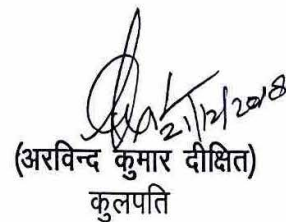 21/12/2018
(अरविन्द कुमार दीक्षित)
कुलपति